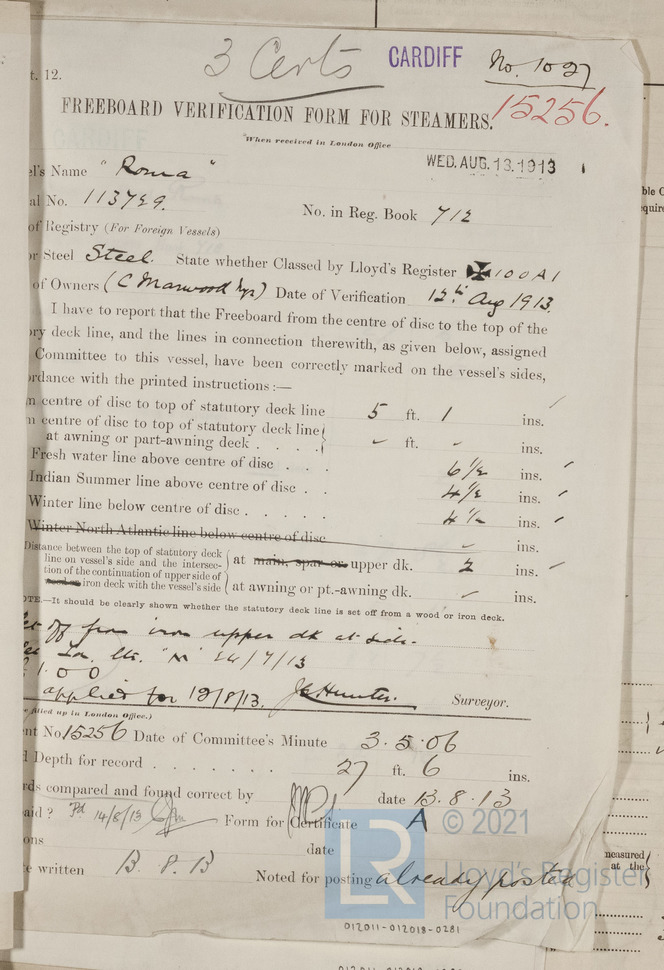 3 Certs CARDIFF No. 1027
t. 12.
15256.
FREEBOARD VERIFICATION FORM FOR STEAMERS.
When received in London Office
WED. AUG. 13. 1913
el's Name "Roma"
al No. 113729.
No. in Reg. Book 712
of Registry (For Foreign Vessels)
or Steel Steel. State whether Classed by Lloyd's Register ✠100A1
of Owners (C Marwood Date of Verification 12th Aug 1913.
I have to report that the Freeboard from the centre of disc to the top of the
ory deck line, and the lines in connection therewith, as given below, assigned
Committee to this vessel, have been correctly marked on the vessel's sides,
ordance with the printed instructions:—
m centre of disc to top of statutory deck line 5 ft. 1 ins.
m centre of disc to top of statutory deck line
at awning or part-awning deck . . . . - ft. - ins.
Fresh water line above centre of disc . . . 6 1/2 ins.
Indian Summer line above centre of disc . . 4 1/2 ins.
Winter line below centre of disc . . . . . 4 1/2 ins.
Winter North Atlantic line below centre of disc - ins.
Distance between the top of statutory deck
line on vessel's side and the intersec-
tion of the continuation of upper side of
wood or iron deck with the vessel's side
at main, spar or upper dk. 2 ins.
at awning or pt.-awning dk. - ins.
OTE.—It should be clearly shown whether the statutory deck line is set off from a wood or iron deck.
set off from iron upper dk at side.
Lts. "M" 24/7/13
1. 0 0
applied for 12/8/13. Hunter. Surveyor.
e filled up in London Office.)
nt No 15256 Date of Committee's Minute 3.5.06
d Depth for record . . . . . . . 27 ft. 6 ins.
rds compared and found correct by date 13.8.13
aid? Pd 14/8/13 Form for Certificate A
ons date
e written 13.8.13 Noted for posting already posted
© 2021
LR
Lloyd's Register
Foundation
012011-012018-0281
ble C
quire
measured
at the